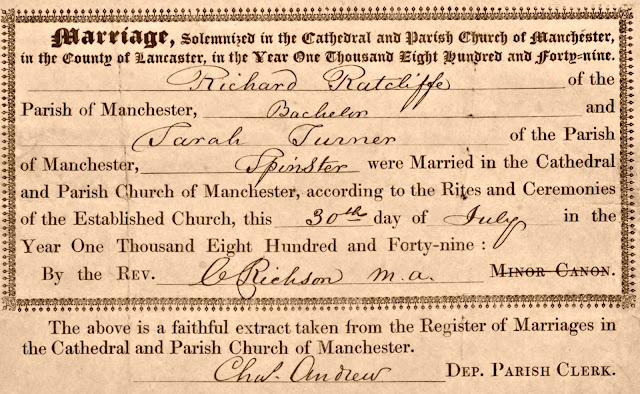 Marriage, Solemnized in the Cathedral and Parish Church of Manchester,
in the County of Lancaster, in the Year One Thousand Eight Hundred and Forty-nine.
Richard Ratcliffe of the
Parish of Manchester, Bachelor and
Sarah Turner of the Parish
of Manchester, Spinster were Married in the Cathedral
and Parish Church of Manchester, according to the Rites and Ceremonies
of the Established Church, this 30th day of July in the
Year One Thousand Eight Hundred and Forty-nine :
By the REV. C Richson M.A. MINOR CANON.
The above is a faithful extract taken from the Register of Marriages in
the Cathedral and Parish Church of Manchester.
Chas. Andrew DEP. PARISH CLERK.